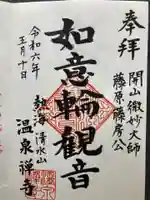 奉拝
開山微妙大師
藤原藤房公
如意輪観音
令和六年
五月十日
清水山
温泉禅寺